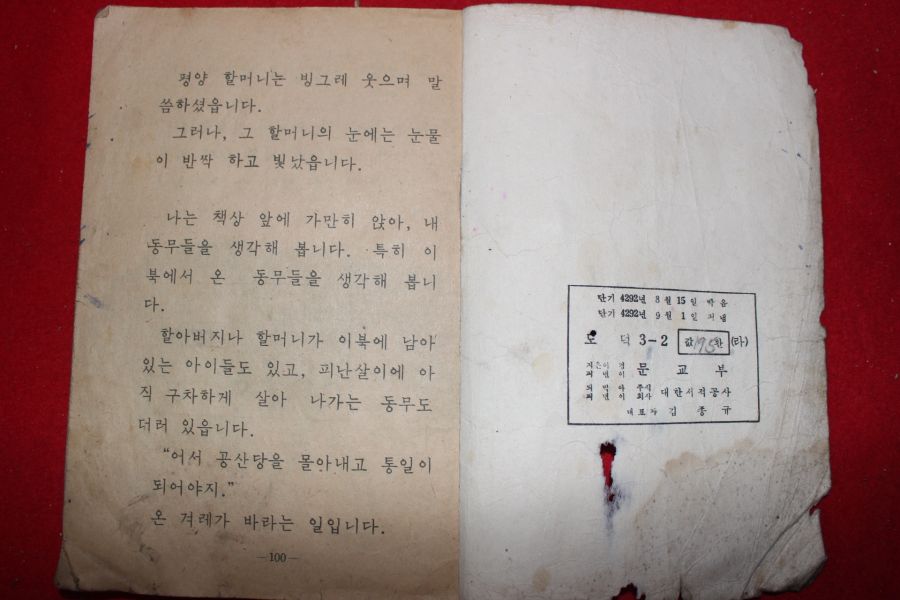 평양 할머니는 빙그레 웃으며 말
씀하셨읍니다.
그러나, 그 할머니의 눈에는 눈물
이 반짝 하고 빛났읍니다.
나는 책상 앞에 가만히 앉아, 내
동무들을 생각해 봅니다. 특히 이
북에서 온 동무들을 생각해 봅니
다.
할아버지나 할머니가 이북에 남아
있는 아이들도 있고, 피난살이에 아
직 구차하게 살아 나가는 동무도
더러 있읍니다.
“어서 공산당을 몰아내고 통일이
되어야지.”
온 겨레가 바라는 일입니다.
—100—
단기 4292년 8월 15일 박음
단기 4292년 9월 1일 펴냄
도 덕 3-2 값 환 (라)
지은이 겸
펴낸이 문교부
박아
펴낸이 주식
회사 대한서적공사
대표자 김종규